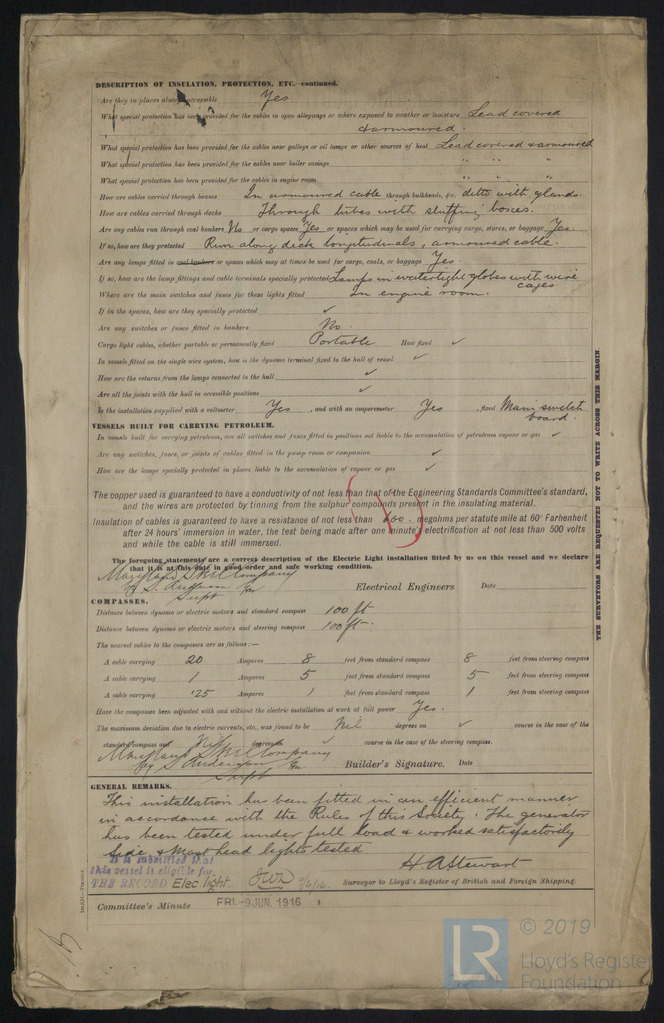 DESCRIPTION OF INSULATION, PROTECTION, ETC.—continued.
Are they in places always accessible Yes
What special protection has been provided for the cables in open alleyways or where exposed to weather or moisture Lead covered
& armoured.
What special protection has been provided for the cables near galleys or oil lamps or other sources of heat Lead covered & armoured
What special protection has been provided for the cables near boiler casings " " "
What special protection has been provided for the cables in engine room " " "
How are cables carried through beams In armoured cable through bulkheads, &c. ditto with glands.
How are cables carried through decks Through tubes with stuffing boxes.
Are any cables run through coal bunkers No or cargo spaces Yes or spaces which may be used for carrying cargo, stores, or baggage Yes.
If so, how are they protected Run along deck longitudinals, armoured cable.
Are any lamps fitted in coal bunkers or spaces which may at times be used for cargo, coals, or baggage Yes.
If so, how are the lamp fittings and cable terminals specially protected Lamps in watertight globes with wire
cages.
Where are the main switches and fuses for these lights fitted In engine room.
If in the spaces, how are they specially protected ✓
Are any switches or fuses fitted in bunkers No.
Cargo light cables, whether portable or permanently fixed Portable How fixed ✓
In vessels fitted on the single wire system, how is the dynamo terminal fixed to the hull of vessel ✓
How are the returns from the lamps connected to the hull ✓
Are all the joints with the hull in accessible positions ✓
Is the installation supplied with a voltmeter Yes , and with an amperemeter Yes , fixed Main switch
board.
VESSELS BUILT FOR CARRYING PETROLEUM.
In vessels built for carrying petroleum, are all switches and fuses fitted in positions not liable to the accumulation of petroleum vapour or gas ✓
Are any switches, fuses, or joints of cables fitted in the pump room or companion ✓
How are the lamps specially protected in places liable to the accumulation of vapour or gas ✓
The copper used is guaranteed to have a conductivity of not less than that of the Engineering Standards Committee's standard,
and the wires are protected by tinning from the sulphur compounds present in the insulating material.
Insulation of cables is guaranteed to have a resistance of not less than 600 megohms per statute mile at 60° Farhenheit
after 24 hours' immersion in water, the test being made after one minute's electrification at not less than 500 volts
and while the cable is still immersed.
The foregoing statements are a correct description of the Electric Light installation fitted by us on this vessel and we declare
that it is at this date in good order and safe working condition.
Maryland Steel Company
by S. Anderson
Supt
Electrical Engineers Date
COMPASSES.
Distance between dynamo or electric motors and standard compass 100 ft
Distance between dynamo or electric motors and steering compass 100 ft.
The nearest cables to the compasses are as follows:—
A cable carrying 20 Amperes 8 feet from standard compass 8 feet from steering compass
A cable carrying 1 Amperes 5 feet from standard compass 5 feet from steering compass
A cable carrying .25 Amperes 1 feet from standard compass 1 feet from steering compass
Have the compasses been adjusted with and without the electric installation at work at full power Yes.
The maximum deviation due to electric currents, etc., was found to be Nil degrees on ✓ course in the case of the
standard compass and Nil degrees on ✓ course in the case of the steering compass.
Maryland Steel Company
by S. Anderson
Supt
Builder's Signature. Date
GENERAL REMARKS.
This installation has been fitted in an efficient manner
in accordance with the Rules of this Society. The generator
has been tested under full load & worked satisfactorily
Side & Mast head lights tested
It is submitted that
this vessel is eligible for
THE RECORD Elec light. 9/6/16.
H. A. Stewart
Surveyor to Lloyd's Register of British and Foreign Shipping.
Committee's Minute FRI. -9 JUN. 1916
THE SURVEYORS ARE REQUESTED NOT TO WRITE ACROSS THIS MARGIN.
LR
© 2019
Lloyd's Register
Foundation